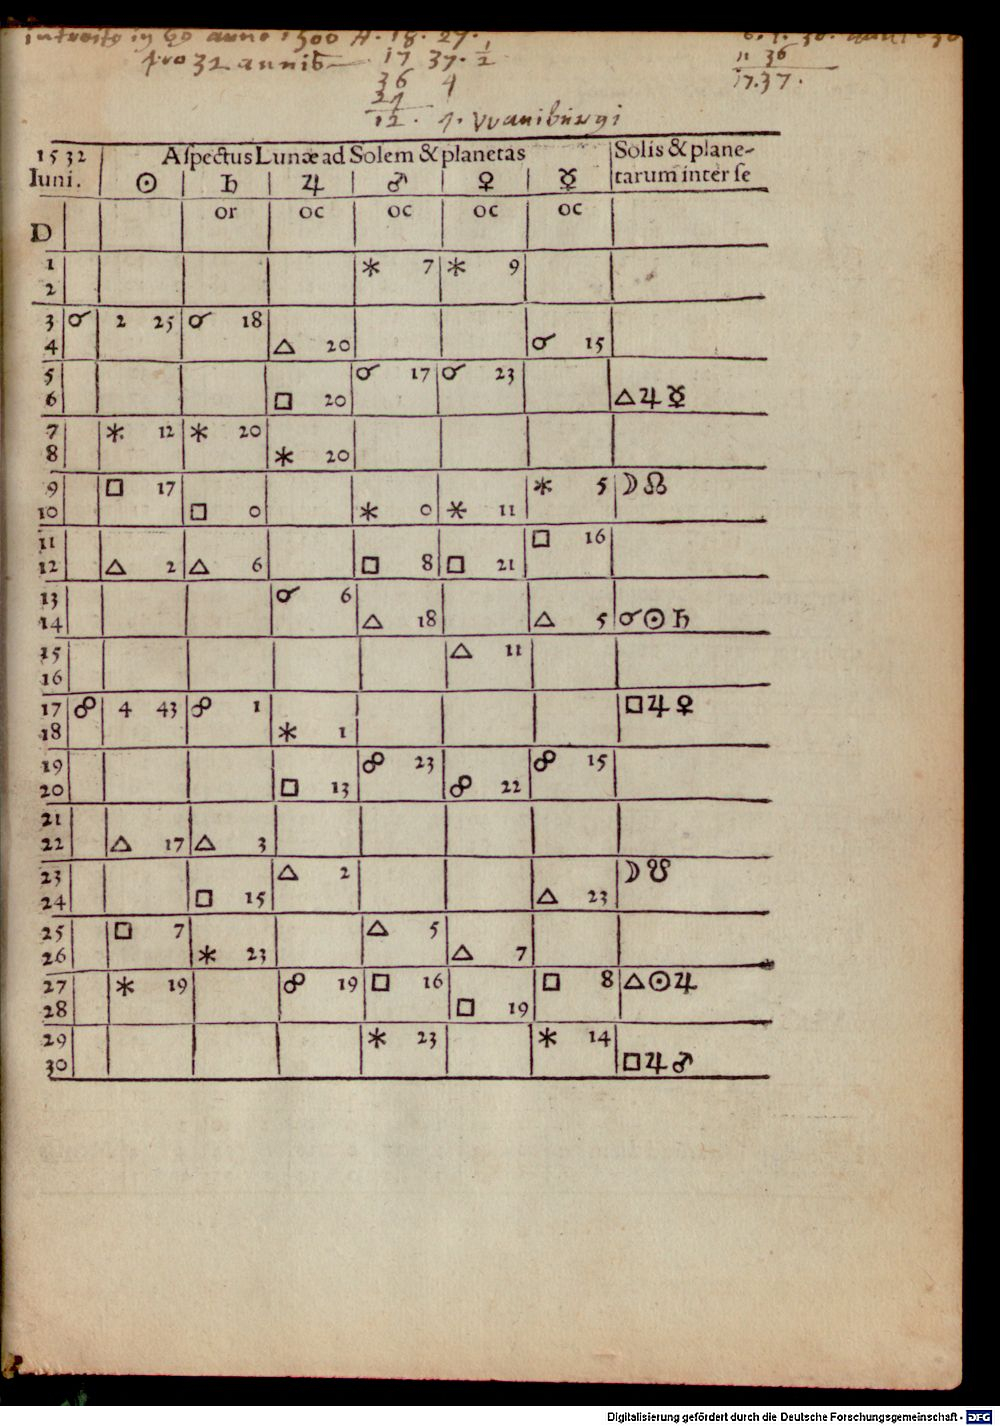 anno 1500 A. 18. 27.
pro 32 annis 17 37. 1/2
11 36
36 4
17.37.
12.
1532 Aſpectus Lunæ ad Solem & planetas Solis & plane-
Iuni. ☉ ♄ ♃ ♂ ♀ ☿ tarum inter ſe
D or oc oc oc oc
1 ⚹ 7 ⚹ 9
2
3 ☌ 2 25 ☌ 18
4 △ 20 ☌ 15
5 ☌ 17 ☌ 23
6 □ 20 △ ♃ ☿
7 ⚹ 12 ⚹ 20
8 ⚹ 20
9 □ 17 ⚹ 5 ☽ ☊
10 □ 0 ⚹ 0 ⚹ 11
11 □ 16
12 △ 2 △ 6 □ 8 □ 21
13 ☌ 6
14 △ 18 △ 5 ☌ ☉ ♄
15 △ 11
16
17 ☍ 4 43 ☍ 1 □ ♃ ♀
18 ⚹ 1
19 ☍ 23 ☍ 15
20 □ 13 ☍ 22
21
22 △ 17 △ 3
23 △ 2 ☽ ☋
24 □ 15 △ 23
25 □ 7 △ 5
26 ⚹ 23 △ 7
27 ⚹ 19 ☍ 19 □ 16 □ 8 △ ☉ ♃
28 □ 19
29 ⚹ 23 ⚹ 14
30 □ ♃ ♂
Digitalisierung gefördert durch die Deutsche Forschungsgemeinschaft - DFG